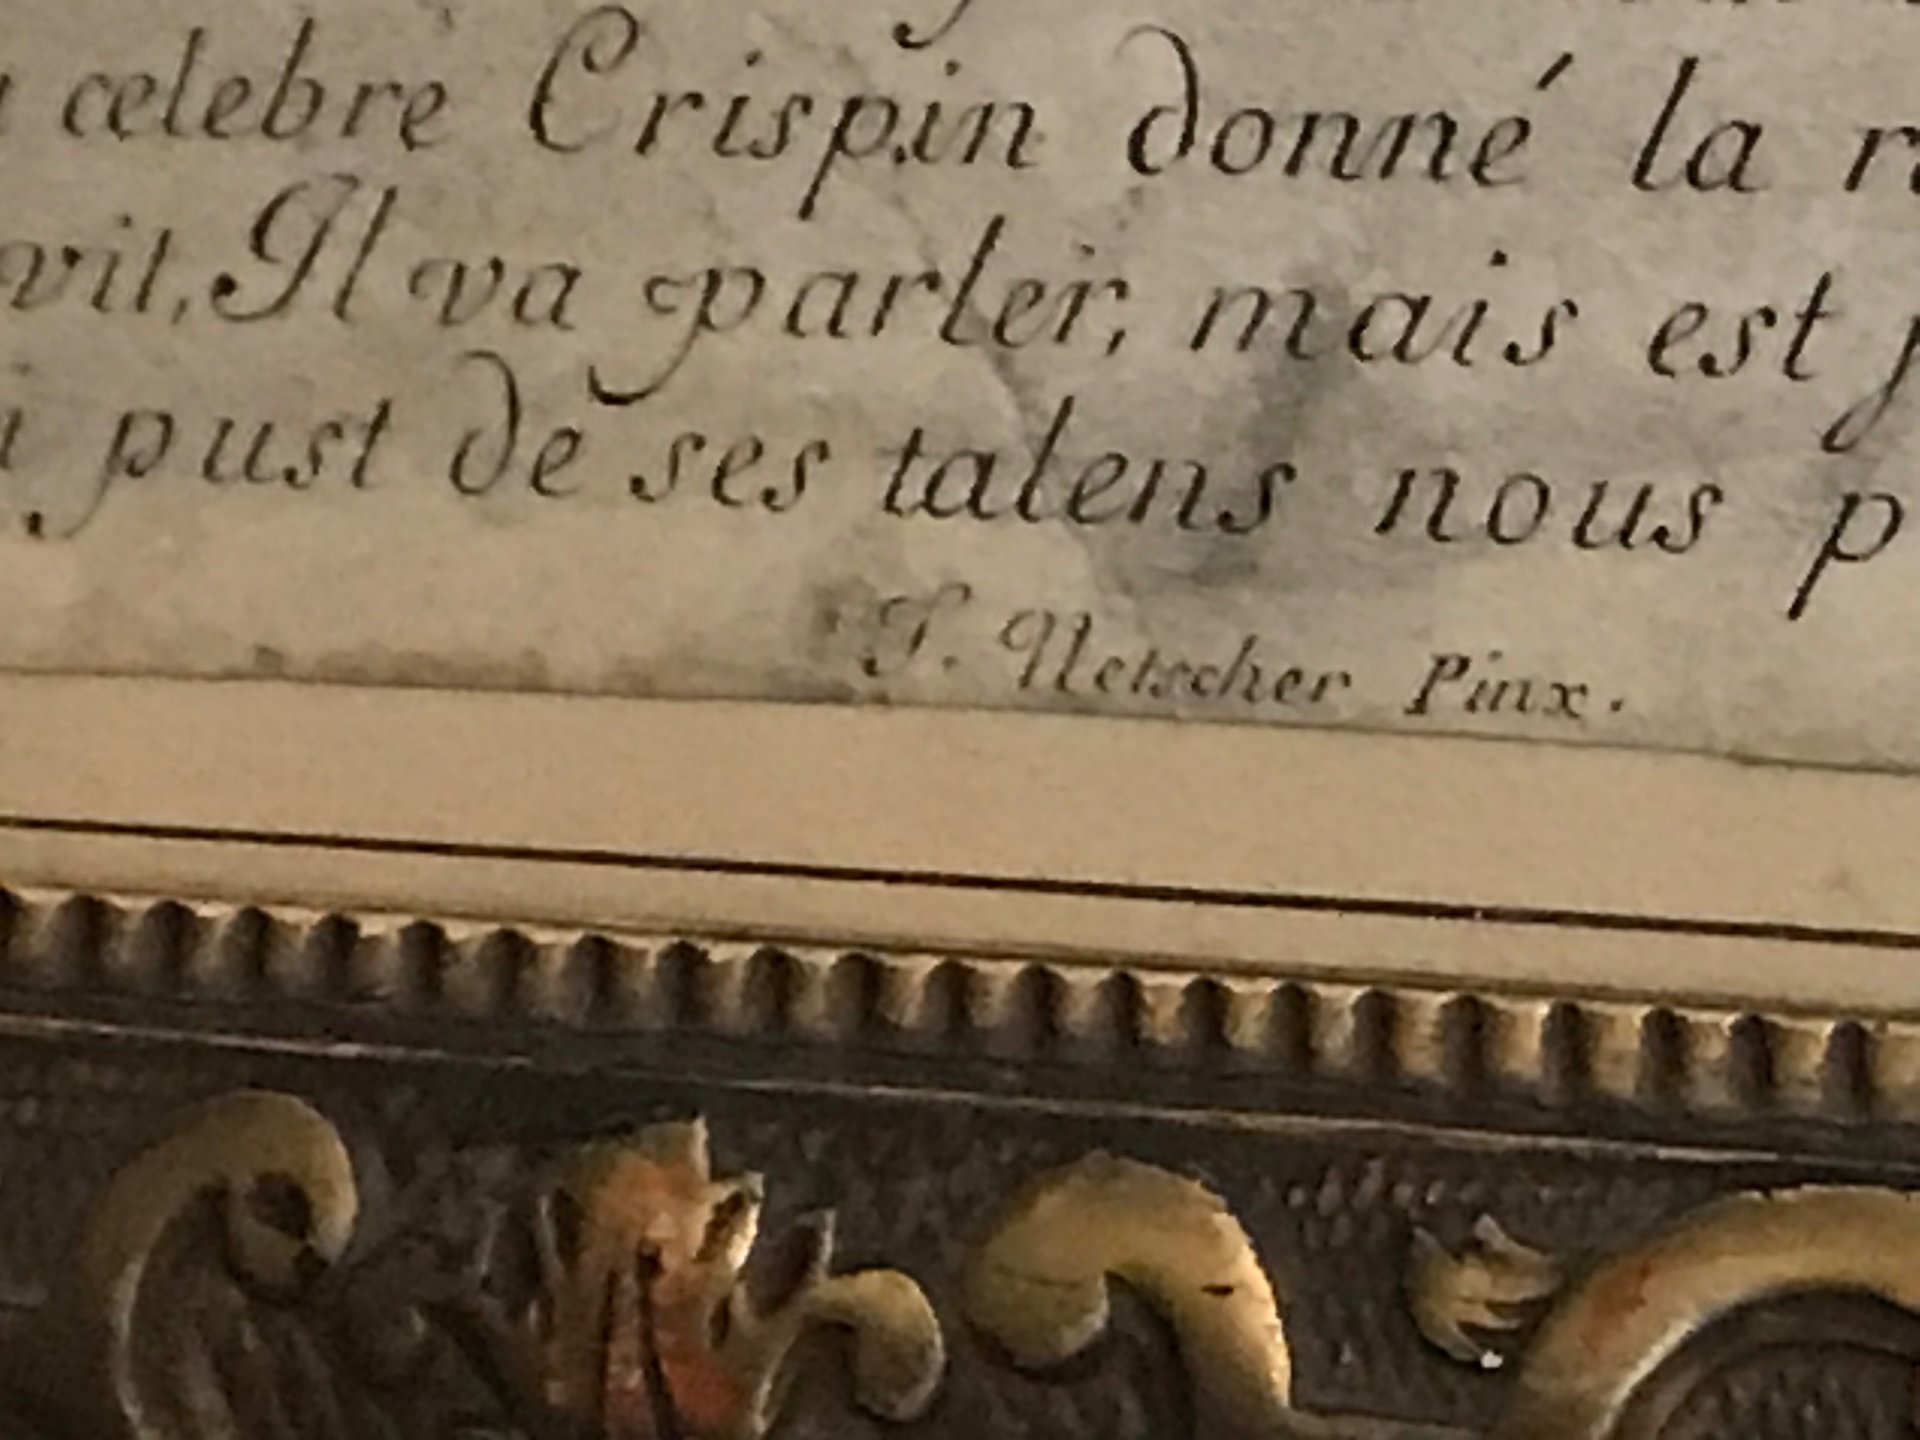 celebre Crispin donné la
vit, Il va parler, mais est
pust de ses talens nous
Netscher Pinx.